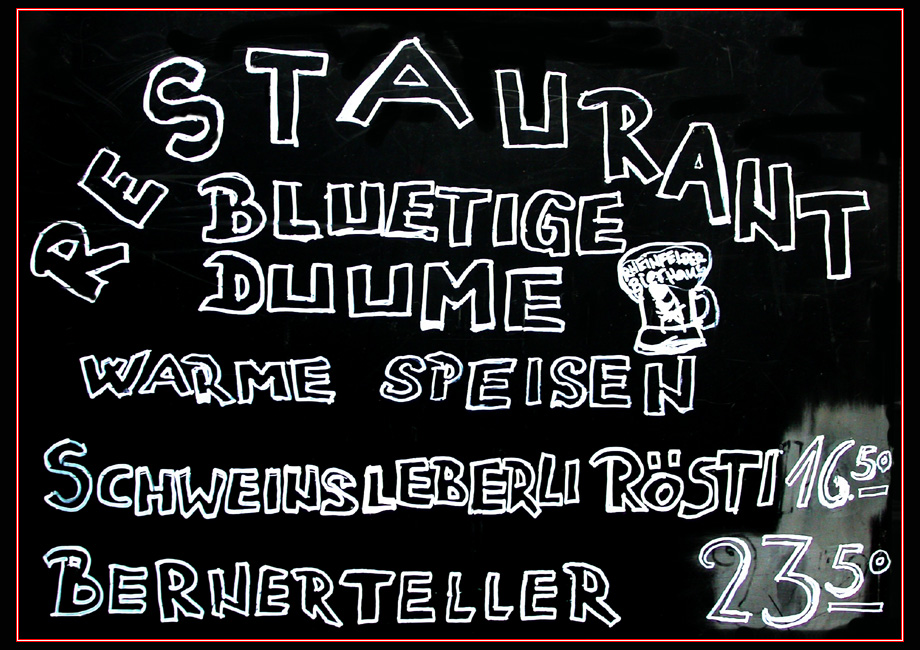 RESTAURANT
BLUETIGE
DUUME
RHEINFELDER
WARME SPEISEN
SCHWEINSLEBERLI RÖSTI 16.50
BERNERTELLER 23 50